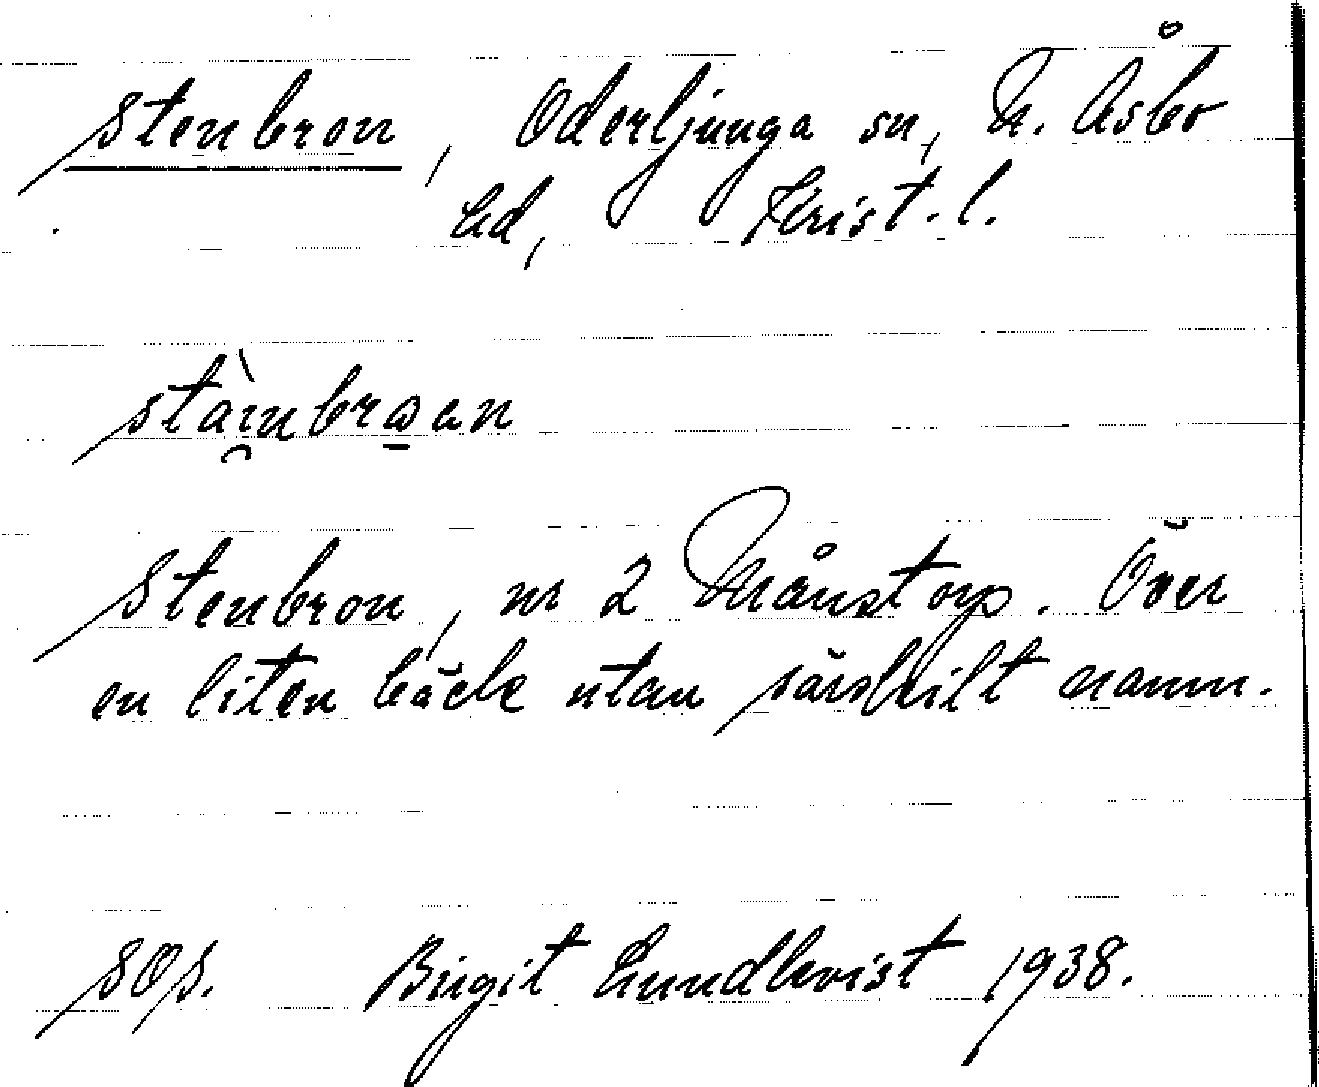 Stenbron, Oderljunga sn, N. Åsbo
hd, Krist. l.
Stenbron, nr 2 Månstorp. Över
en liten bäck utan särskilt namn.
SOS. Birgit Lundkvist 1938.